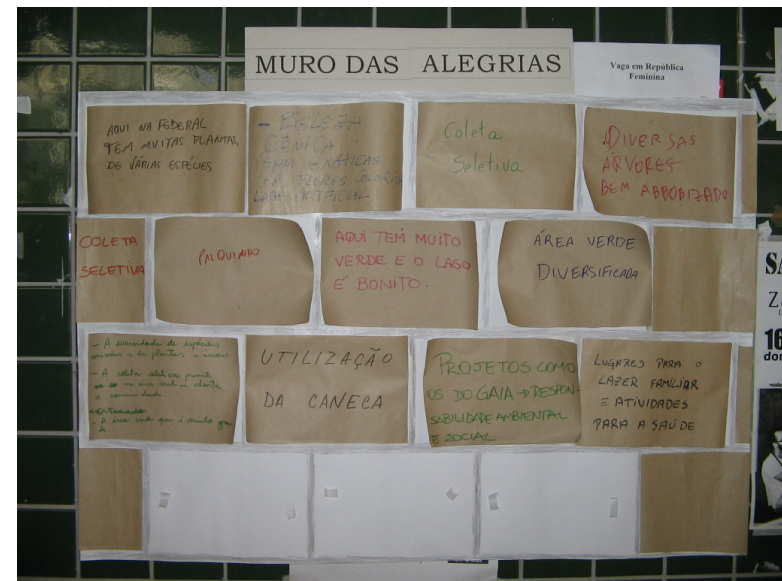 MURO DAS ALEGRIAS
Vaga em República
Feminina
AQUI NA FEDERAL
TEM MUITAS PLANTAS,
DE VÁRIAS ESPÉCIES
- BELEZA
CÊNICA
EXÓTICAS
COM FLORES
ARTIFICIAL
Coleta
Seletiva
DIVERSAS
ÁRVORES
BEM ARBORIZADO
COLETA
SELETIVA
PALQUINHO
AQUI TEM MUITO
VERDE E O LAGO
É BONITO.
ÁREA VERDE
DIVERSIFICADA
- A diversidade de espécies
animais e de plantas e árvores
- A coleta seletiva
a comunidade.
- A área verde que é muito
UTILIZAÇÃO
DA CANECA
PROJETOS COMO
OS DO GAIA → RESPON-
SABILIDADE AMBIENTAL
E SOCIAL
LUGARES PARA O
LAZER FAMILIAR
E ATIVIDADES
PARA A SAÚDE
16